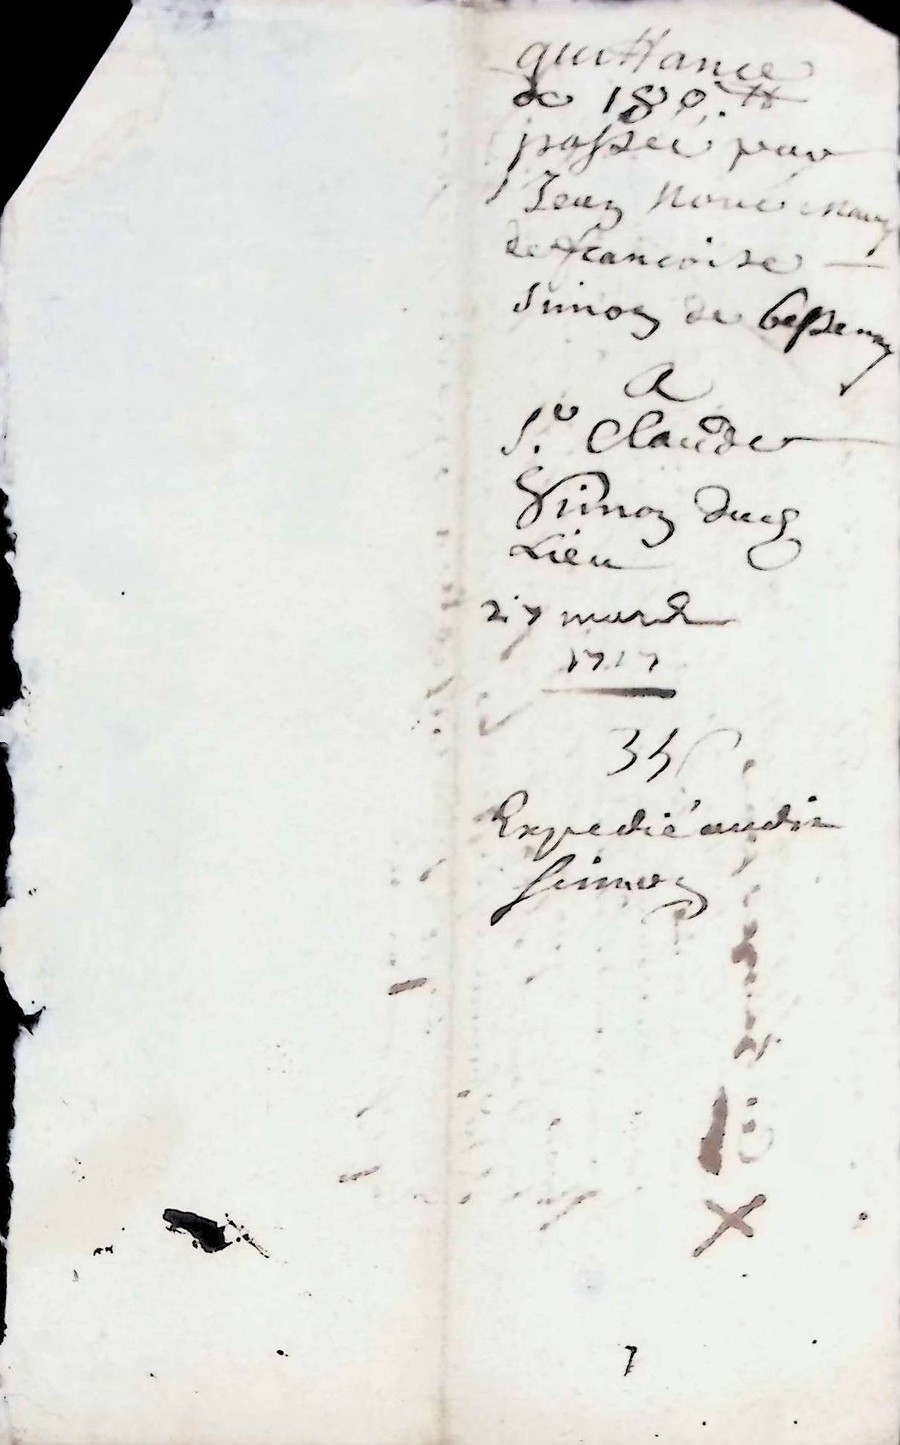 quittance
de 180 ₶
passée par
Jean mary
de francoise
Simon de bessenay
A
Sr. Claude
Simon dud
Lieu
27 mars
1717
35 s
Expedié audit
Simon
7